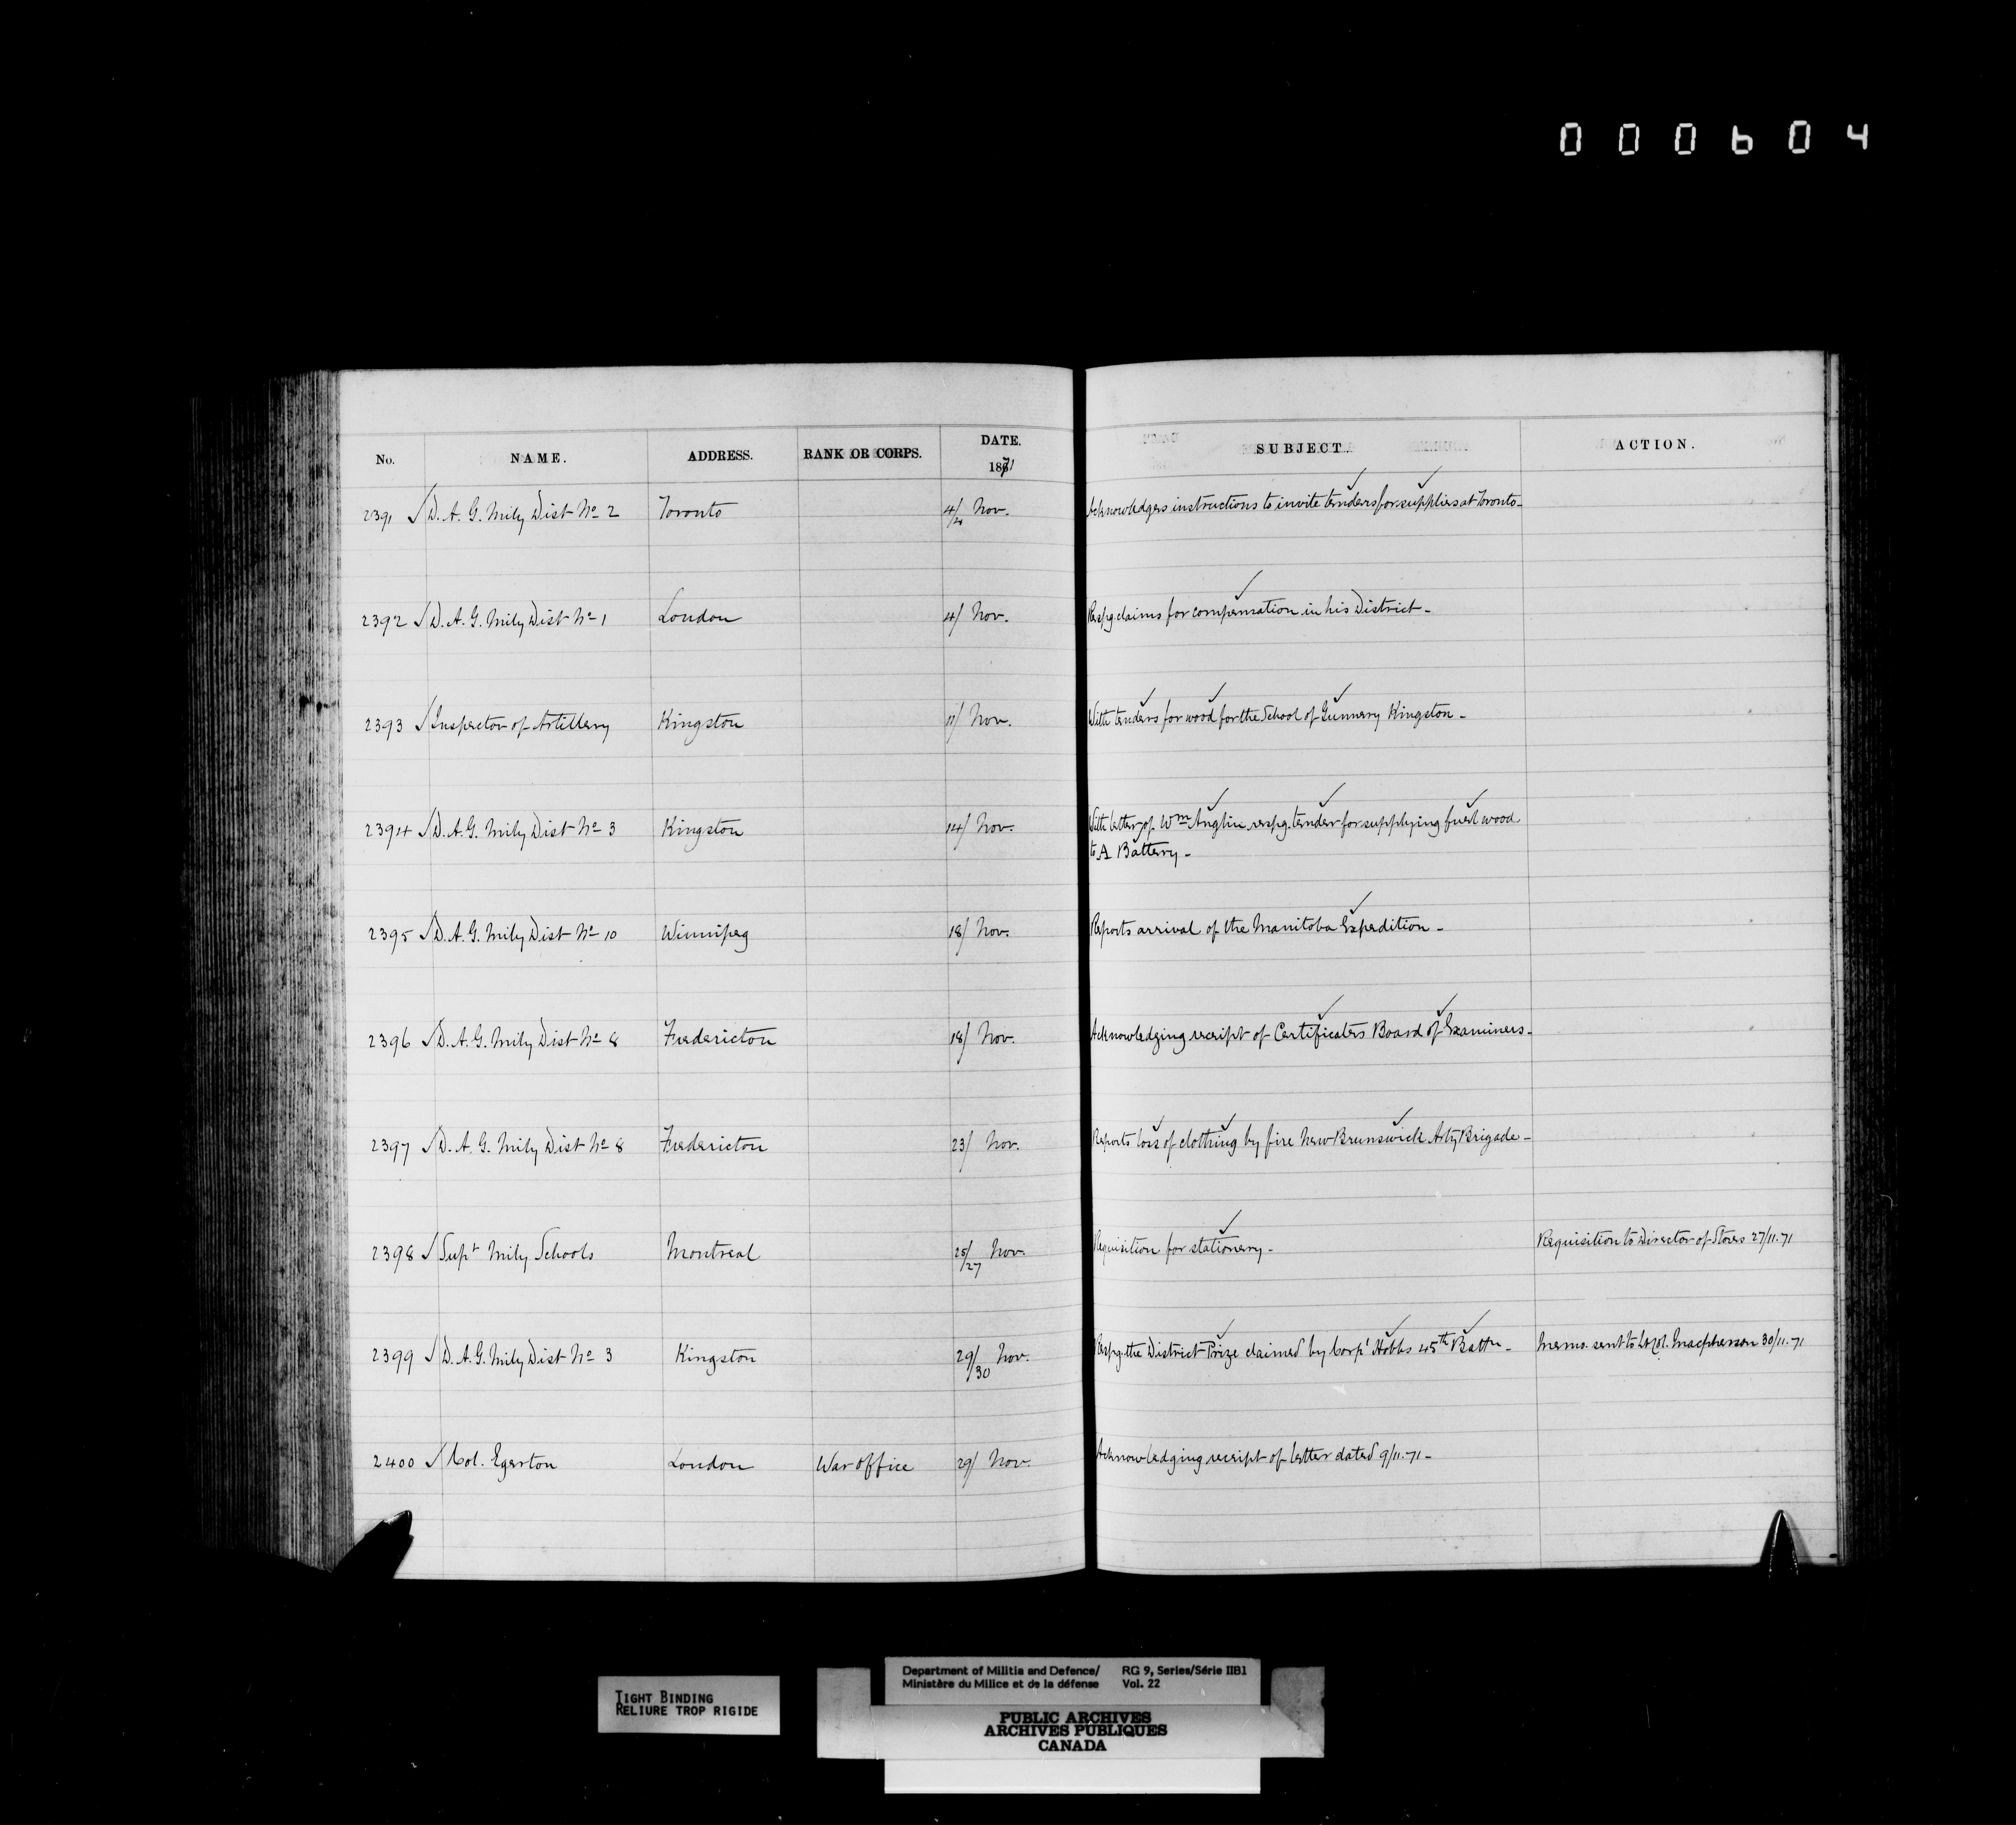 000604
No. NAME. ADDRESS. RANK OR CORPS. DATE. SUBJECT. ACTION.
1871
2391 ✓ D. A. G. Mily Dist No 2 Toronto 4/4 Nov. Acknowledges instructions to invite tenders for supplies at Toronto-
2392 ✓ D. A. G. Mily Dist No 1 London 4/ Nov. Respg. claims for compensation in his District -
2393 ✓ Inspector of Artillery Kingston 11/ Nov. With tenders for wood for the School of Gunnery Kingston -
2394 ✓ D. A. G. Mily Dist No 3 Kingston 14/ Nov. With letter of Wm Anglin respg. tender for supplying fuel wood
to A Battery -
2395 ✓ D. A. G. Mily Dist No 10 Winnipeg 18/ Nov. Reports arrival of the Manitoba Expedition -
2396 ✓ D. A. G. Mily Dist No 8 Fredericton 18/ Nov. Acknowledging receipt of Certificates Board of Examiners -
2397 ✓ D. A. G. Mily Dist No 8 Fredericton 23/ Nov. Reports loss of clothing by fire New Brunswick Arty Brigade -
2398 ✓ Supt Mily Schools Montreal 25/27 Nov. Requisition for stationery - Requisition to Director of Stores 27/11.71
2399 ✓ D. A. G. Mily Dist No 3 Kingston 29/30 Nov. Respg. the District Prize claimed by Corpl Hobbs 45th Battn - Memo. sent to Lt Col. Macpherson 30/11.71
2400 ✓ Col. Egerton London War Office 29/ Nov. Acknowledging receipt of letter dated 9/11.71 -
TIGHT BINDING
RELIURE TROP RIGIDE
Department of Militia and Defence/ RG 9, Series/Série IIB1
Ministère du Milice et de la défense Vol. 22
PUBLIC ARCHIVES
ARCHIVES PUBLIQUES
CANADA